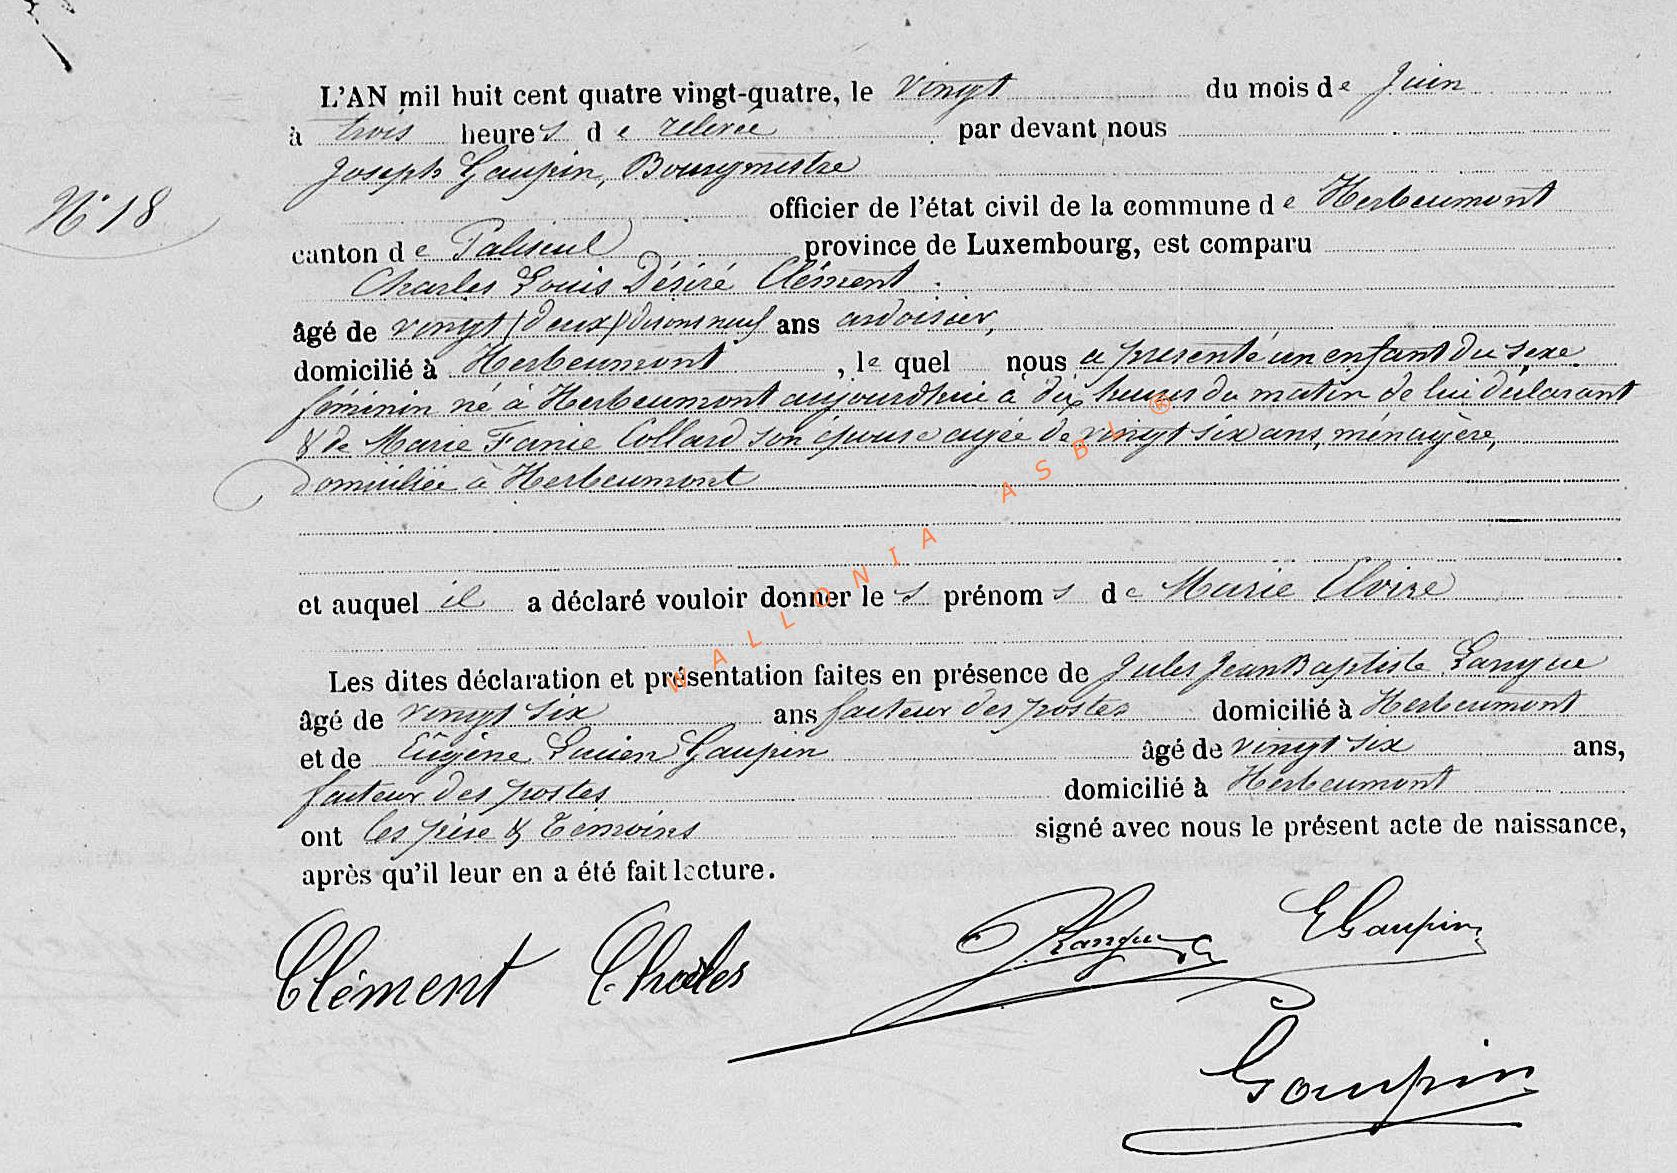 L'AN mil huit cent quatre vingt-quatre, le vingt du mois de Juin
à trois heures de relevée par devant nous
Joseph Gaupin, Bourgmestre
N° 18
officier de l'état civil de la commune de Herbeumont
canton de Paliseul province de Luxembourg, est comparu
Charles Louis Désiré Clément
âgé de vingt (deux) disons neuf ans ardoisier,
domicilié à Herbeumont, lequel nous a présenté un enfant du sexe
féminin né à Herbeumont aujourd'hui à dix heures du matin de lui déclarant
& de Marie Fanie Collard son épouse agée de vingt six ans, ménagère,
domiciliée à Herbeumont
et auquel il a déclaré vouloir donner les prénoms de Marie Elvire
Les dites déclaration et présentation faites en présence de Jules Jean Baptiste Langue
âgé de vingt six ans facteur des postes domicilié à Herbeumont
et de Eugène Lucien Gaupin âgé de vingt six ans,
facteur des postes domicilié à Herbeumont
ont les père & témoins signé avec nous le présent acte de naissance,
après qu'il leur en a été fait lecture.
Clément Charles JLangue EGaupin
Gaupin
WALLONIA ASBL ®